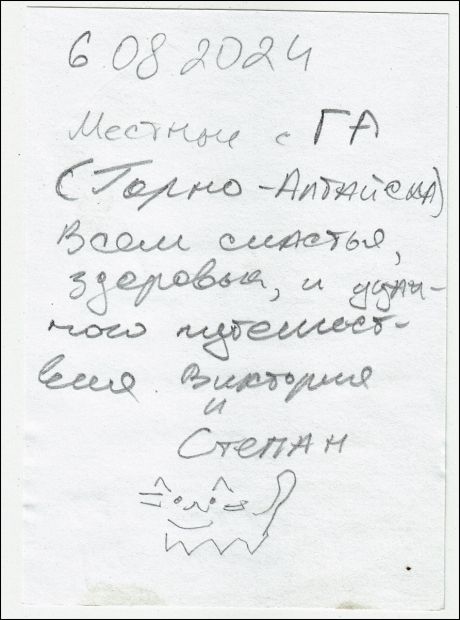 6 08 2024
Местные с ГА
(Горно-Алтайска)
Всем счастья,
здоровья, и удач-
ного путешест-
вия Виктория
и
Степан